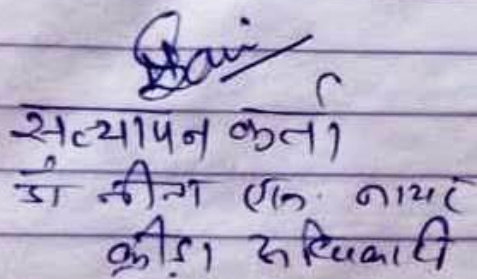 सत्यापन कर्ता
डॉ नीना एन. नायर
क्रीड़ा अधिकारी